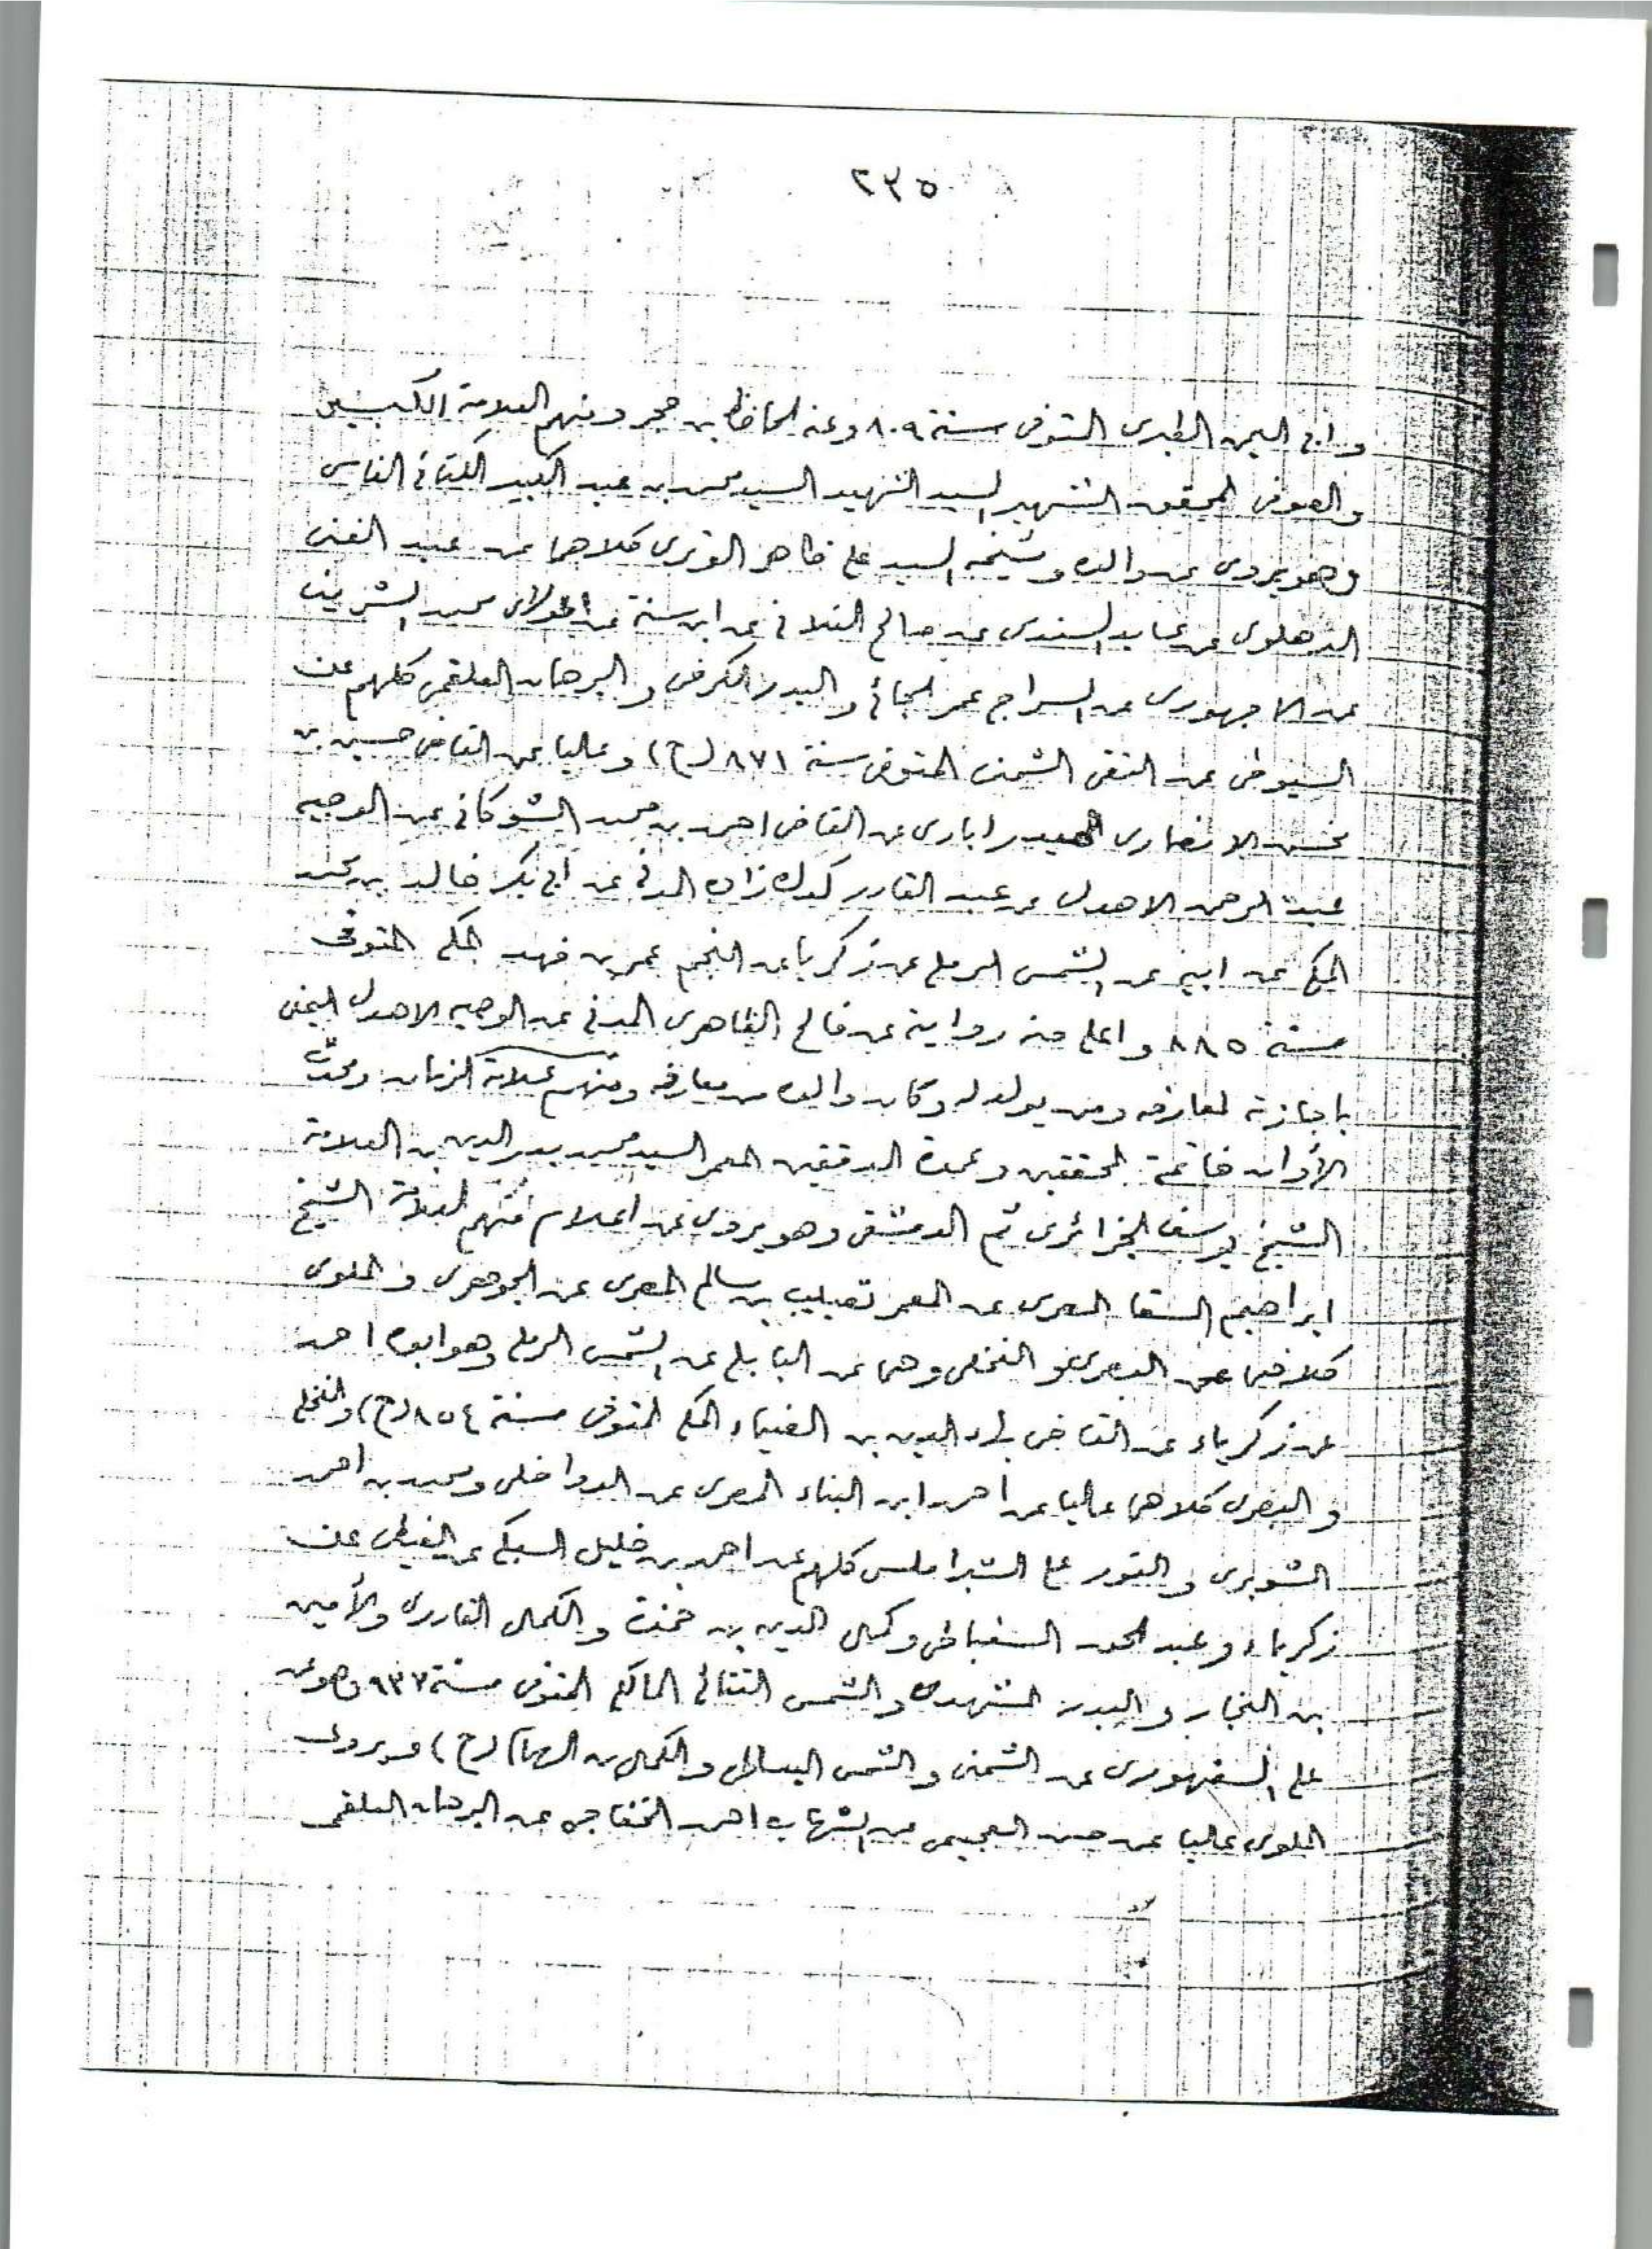 ٢٣٥
وابى اليمن الطبرى المتوفى سنة ٨٠٩ وعنه الحافظ بن حجر ومنهم العلامة الكبير
والصوفى المحقق الشهير السيد الشهيد السيد محمد بن عبد الكبير الكتانى الفاسى
وهو يروى عن والده وشيخه السيد على ظاهر الوترى كلاهما عن عبد الغنى
الدهلوى عن عابد السندى عن صالح الفلانى عن ابن سنة عن المولاى محمد الشريف
عن الاجهورى عن السراج عمر الجائى والبدر الكرخى والبرهان العلقمى كلهم عن
السيوطى عن التقى الشمنى المتوفى سنة ٨٧١ (ح) وعاليا عن القاضى حسين بن
محسن الانصارى الحيدرابادى عن القاضى احمد بن محمد الشوكانى عن الوجيه
عبد الرحمن الاهدل عن عبد القادر كدك زاده المدنى عن ابى بكر خالد بن محمد
المكى عن ابيه عن الشمس الرملى عن زكريا عن النجم عمر بن فهد المكى المتوفى
سنة ٨٨٥ واعلى منه رواية عن فالح الظاهرى المدنى عن الوجيه الاهدل اليمنى
باجازته لمعارفه ومن يولد له وكان والده من معارفه ومنهم علامة الزمان ومحدث
الأوان خاتمة المحققين وعمدة المدققين المعمر السيد محمد بدر الدين بن العلامة
الشيخ يوسف الجزائرى ثم الدمشقى وهو يروى عن اعلام منهم العلامة الشيخ
ابراهيم السقا المصرى عن المعمر ثعيلب بن سالم المصرى عن الجوهرى والملوى
كلاهما عن البصرى والنخلى وهما عن البابلى عن الشمس الرملى وهو ابوه احمد
عن زكرياء عن القاضى بهاء الدين بن الضياء المكى المتوفى سنة ٨٥٤ (ح) والنخلى
والبصرى كلاهما عاليا عن احمد ابن البناء المصرى عن الدواخلى ومحمد بن احمد
الشوبرى والنور على الشبراملسى كلهم عن احمد بن خليل السبكى عن الغيطى عن
زكرياء وعبد الحق السنباطى وكمال الدين بن حمزة والكمال القادرى والأمين
بن النجار والبدر المشهدى والشمس التتائى المالكى المتوفى سنة ٩٣٧ وهو عن
على السنهورى عن الشمنى والشمس البساطى والكمال بن الهمام (ح) ويروى
الملوى عاليا عن حسن العجيمى عن الشهاب احمد الخفاجى عن البرهان العلقمى